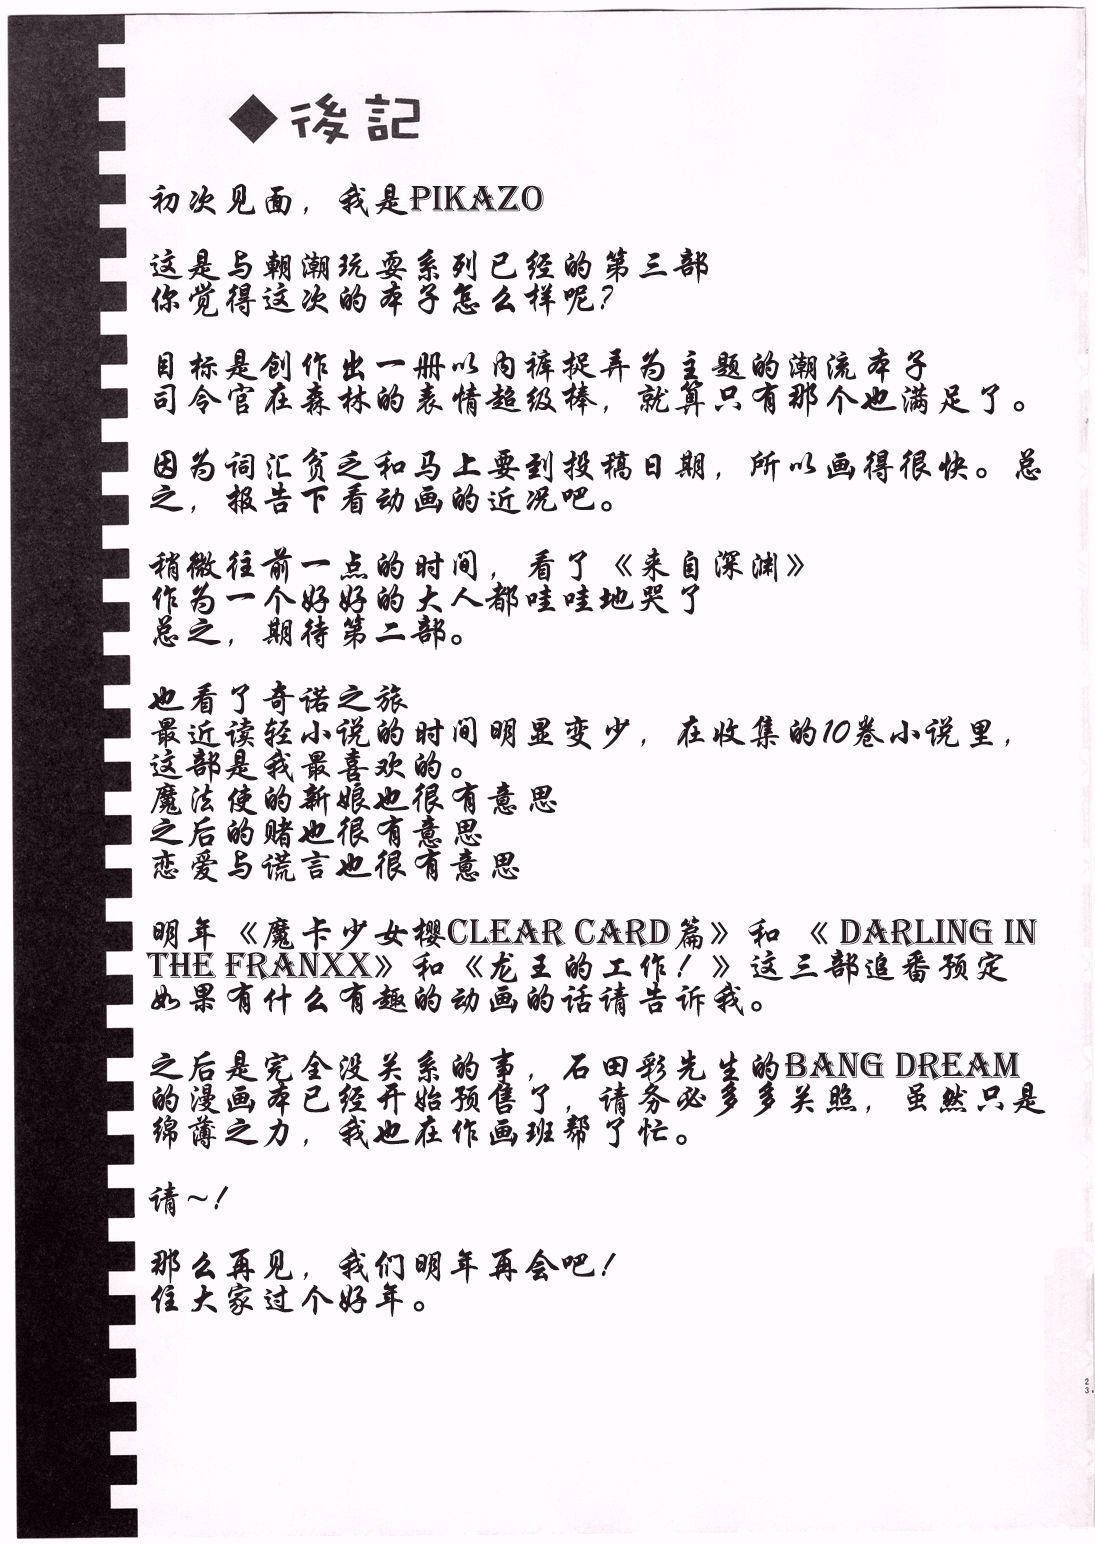 ◆後記
初次见面，我是PIKAZO
这是与朝潮玩耍系列已经的第三部
你觉得这次的本子怎么样呢？
目标是创作出一册以内裤捉弄为主题的潮流本子
司令官在森林的表情超级棒，就算只有那个也满足了。
因为词汇贫乏和马上要到投稿日期，所以画得很快。总
之，报告下看动画的近况吧。
稍微往前一点的时间，看了《来自深渊》
作为一个好好的大人都哇哇地哭了
总之，期待第二部。
也看了奇诺之旅
最近读轻小说的时间明显变少，在收集的10卷小说里，
这部是我最喜欢的。
魔法使的新娘也很有意思
之后的赌也很有意思
恋爱与谎言也很有意思
明年《魔卡少女樱CLEAR CARD篇》和《DARLING IN
THE FRANXX》和《龙王的工作！》这三部追番预定
如果有什么有趣的动画的话请告诉我。
之后是完全没关系的事，石田彩先生的BANG DREAM
的漫画本已经开始预售了，请务必多多关照，虽然只是
绵薄之力，我也在作画班帮了忙。
请～！
那么再见，我们明年再会吧！
住大家过个好年。
23.